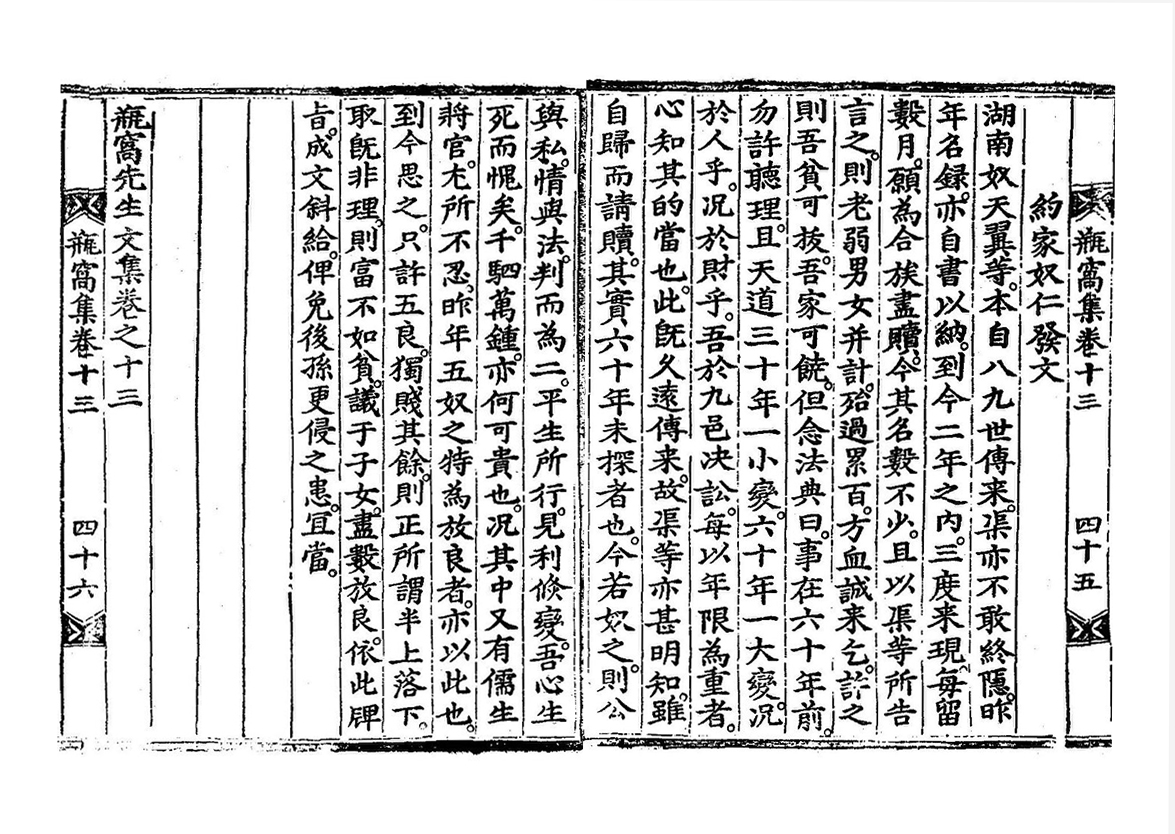 瓶窩集卷十三 四十五
約家奴仁發文
湖南奴天翼等。本自八九世傳来。渠亦不敢終隱。昨
年名録。亦自書以納。到今二年之內。三度来現。每留
數月。願為合族盡贖。今其名數不少。且以渠等所告
言之。則老弱男女并計。殆過累百。方血誠来乞。許之
則吾貧可拔。吾家可饒。但念法典曰。事在六十年前。
勿許聽理。且天道三十年一小變。六十年一大變。况
於人乎。况於財乎。吾於九邑决訟。每以年限為重者。
心知其的當也。此旣久遠傳来。故渠等亦甚明知。雖
自歸而請贖。其實六十年未探者也。今若奴之。則公
與私。情與法。判而為二。平生所行。見利倏變。吾心生
死而愧矣。千駟萬鍾。亦何可貴也。况其中又有儒生
將官。尤所不忍。昨年五奴之特為放良者。亦以此也。
到今思之。只許五良。獨賤其餘。則正所謂半上落下。
取旣非理。則富不如貧。議于子女。盡數放良。依此牌
旨。成文斜給。俾免後孫更侵之患。宜當。
瓶窩先生文集卷之十三
瓶窩集卷十三 四十六